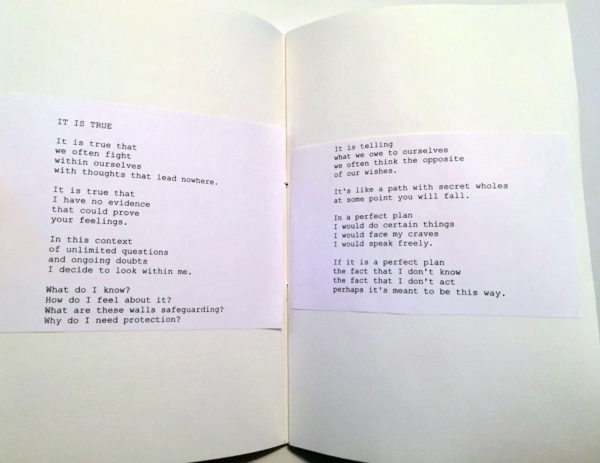 IT IS TRUE
It is true that
we often fight
within ourselves
with thoughts that lead nowhere.
It is true that
I have no evidence
that could prove
your feelings.
In this context
of unlimited questions
and ongoing doubts
I decide to look within me.
What do I know?
How do I feel about it?
What are these walls safeguarding?
Why do I need protection?
It is telling
what we owe to ourselves
we often think the opposite
of our wishes.
It's like a path with secret wholes
at some point you will fall.
In a perfect plan
I would do certain things
I would face my craves
I would speak freely.
If it is a perfect plan
the fact that I don't know
the fact that I don't act
perhaps it's meant to be this way.